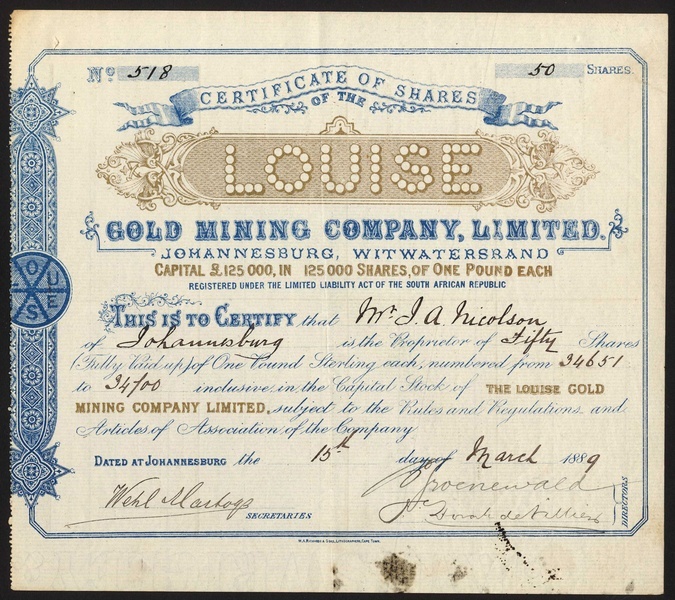 No 518 50 SHARES.
CERTIFICATE OF SHARES
OF THE
LOUISE
GOLD MINING COMPANY, LIMITED.
JOHANNESBURG, WITWATERSRAND
CAPITAL £125 000, IN 125 000 SHARES, OF ONE POUND EACH
REGISTERED UNDER THE LIMITED LIABILITY ACT OF THE SOUTH AFRICAN REPUBLIC
LOUISE
THIS IS TO CERTIFY that Mr. J. A. Nicolson
of Johannesburg is the Proprietor of Fifty Shares
(Fully Paid up) of One Pound Sterling each, numbered from 34651
to 34700 inclusive, in the Capital Stock of THE LOUISE GOLD
MINING COMPANY LIMITED, subject to the Rules and Regulations and
Articles of Association, of the Company
DATED AT JOHANNESBURG the 15th day of March 1889
Groenewald
SECRETARIES
de Villiers
DIRECTORS